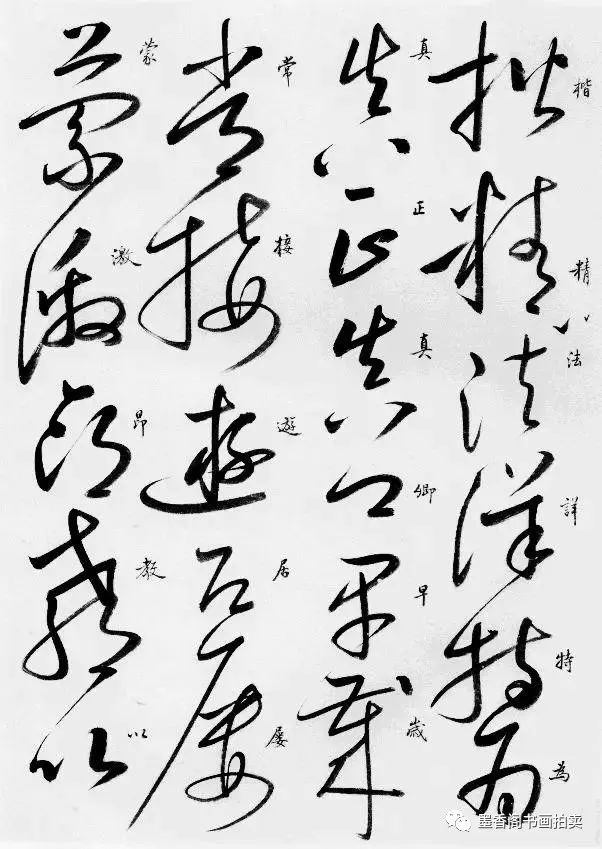 楷精法詳特為
真正真卿早歲
常接遊居屢
蒙激昂教以
墨香阁书画拍卖